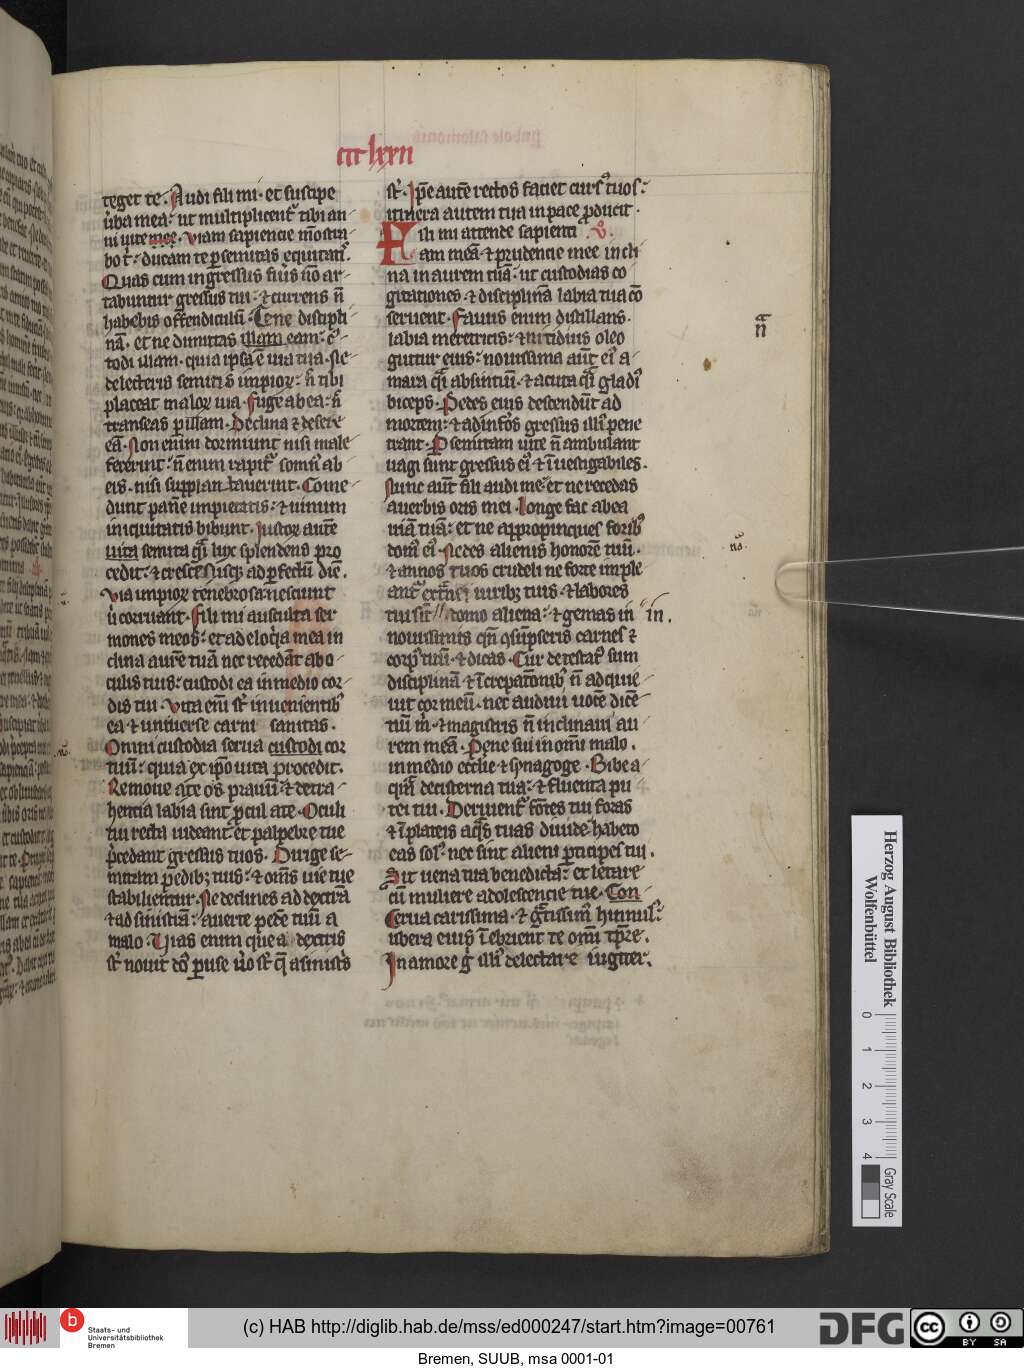 ccclxxii
teget te. Audi fili mi. et suscipe
ũba mea: ut multiplicentᷣ tibi an
ni uite mee. viam sapiencie mõstra
bo t᷑: ducam te ꝑ semitas equitatꝭ.
Quas cum ingressus fuꝰis nõ ar
tabuntur gressus tui: ⁊ curens n̄
habebis offendiculũ. Tene discipli
nã. et ne dimittas illam
todi illam. quia ipsa ẽ uita tua. Ne
delecteris semitis impioꝝ: n̄ tibi
placeat maloꝝ uia. fuge ab ea: n̄
transeas ꝑ illam. Declina ⁊ desere
eã. Non enim dormiunt nisi male
fecerint: n̄ enim rapitᷣ somnꝰ ab
eis. nisi supplantauerint. Come
dunt panẽ impietatis: ⁊ uinum
iniquitatis bibunt. Iustoꝝ autẽ
semita qͣsi lux splendens pro
cedit: ⁊ crescẽs usqꝫ ad ꝑfectũ diẽ.
Via impioꝝ tenebrosa nesciunt
ubi corruant. fili mi ausculta ser
mones meos: et ad eloq̃a mea in
clina aurẽ tuã nec recedãt ab o
culis tuis: custodi ea in medio cor
dis tui. Vita enĩ st᷑ inuenientibꝰ
ea ⁊ uniuerse carni sanitas.
Omni custodia serua custodi cor
tuũ: quia ex ip̃o uita procedit.
Remoue a te os prauũ: ⁊ detra
hentia labia sint ꝓcul a te. Oculi
tui recta uideant et palpebre tue
p̃cedant gressus tuos. Dirige se
mitam pedibꝫ tuis: ⁊ om̃s uie tue
stabilientur. Ne declines ad dextrã
⁊ ad sinistrã: auerte pedẽ tuũ a
malo. Vias enim que a dextris
st᷑ nouit dñs ꝑuerse ũo st᷑ q̃ a sinistᷣs
st᷑. Ip̃e autẽ rectos faciet cursꝰ tuos:
itinera autem tua in pace ꝓducit.
Fili mi attende sapienti v.
am meã ⁊ prudencie mee incli
na in aurem tuã: ut custodias co
gitationes. ⁊ disciplinã labia tua cõ
seruent. Fauus enim distillans.
labia meretricis: ⁊ nitidius oleo
guttur eius: nouissima aũt eiꝰ a
mara qͣsi absintiũ. ⁊ acuta qͣsi gladiꝰ
biceps. Pedes eius descendũt ad
mortem: ⁊ ad inf̃os gressus illiꝰ pene
trant. Ꝑ semitam uite n̄ ambulant
uagi sunt gressus eiꝰ ⁊ ĩuestigabiles.
Nunc aũt fili audi me: et ne recedas
a uerbis oris mei. Longe fac ab ea
uiã tuã: et ne appropinques foribꝰ
domꝰ eiꝰ. Ne des alienis honorẽ tuũ.
⁊ annos tuos crudeli ne forte imple
antᷣ uiribꝫ tuis: ⁊ labores
tui sĩt domo aliena: ⁊ gemas in
nouissimis qñ ꝯsũpseris carnes ⁊
corpꝰ tuũ. ⁊ dicas. Cur detestatꝰ sum
disciplinã ⁊ ĩcrepatõnibꝰ n̄ adquie
uit cor meũ. nec audiui uocẽ dicẽ
tiũ m̃. ⁊ magistris n̄ inclinaui au
rem meã. Pene fui in om̃i malo.
in medio eccl̃ie ⁊ synagoge. Bibe a
quã de cisterna tua: ⁊ fluenta pu
tei tui. Deriuentᷣ fõtes tui foras
⁊ ĩ plateis aq̃s tuas diuide habeto
eas solꝰ. nec sint alieni ꝑticipes tui.
Sit uena tua benedicta: et letare
cũ muliere adolescencie tue. Con
Cerua carissima. ⁊ gͣtissimꝰ hinnulꝰ:
ubera eius ĩebrient te om̃i tp̃re.
In amore g̊ illiꝰ delectare iugiter.
in.
n̄
no.
Herzog August Bibliothek
Wolfenbüttel
0 1 2 3 4
Gray Scale
b
Staats- und
Universitätsbibliothek
Bremen
(c) HAB http://diglib.hab.de/mss/ed000247/start.htm?image=00761
DFG
cc
BY SA
Bremen, SUUB, msa 0001-01